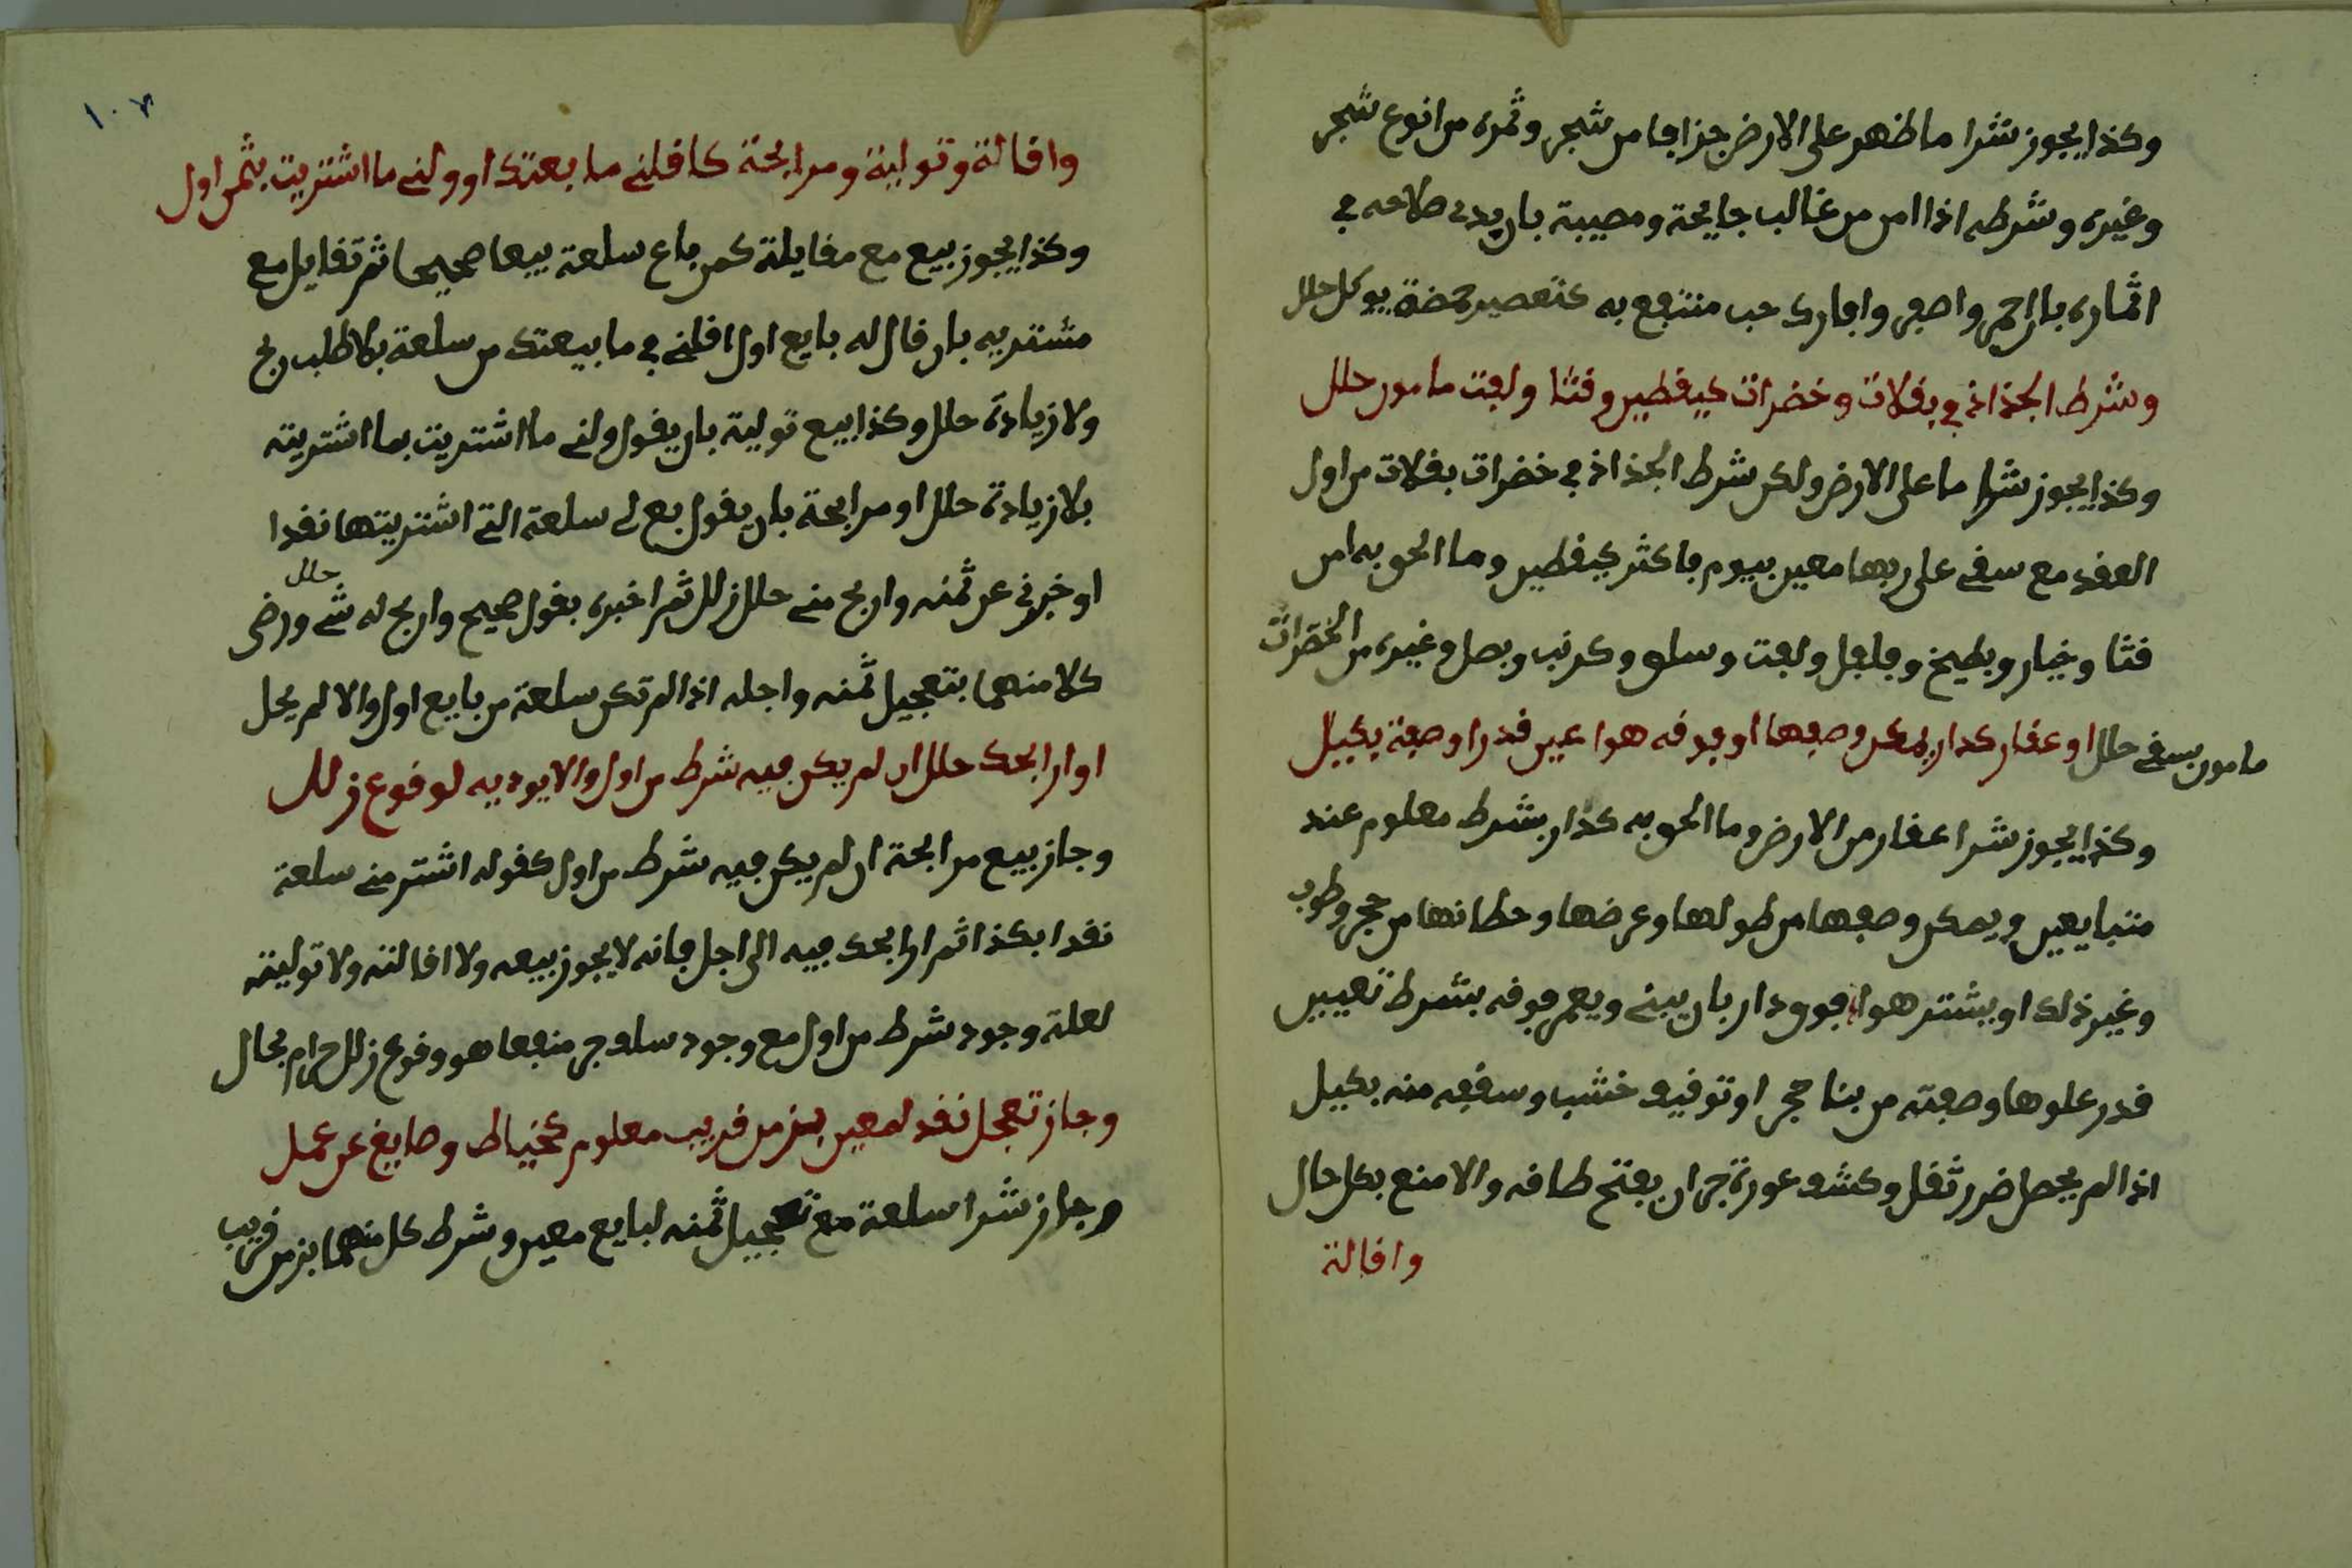 وكذا يجوز شرا ما ظهر على الارض جزافا من شجر وثمره من انوع شجر
وغيره وشرطه اذا امن من غالب جايحة ومصيبة بان يبدى صلاحه في
اثماره بالحمر واصفر وافارك حب منتفع به كتعصير حمضة يوكل حلل
وشرط الجذاذ في بقلات وخضرات كيقطين وقثا ولفت مامون حلل
وكذا يجوز شرا ما على الارض ولكن شرط الجذاذ في خضرات بقلات من اول
العقد مع سقي على ربها معين بيوم فاكثر كيقطين وما الحق به امن
قثا وخيار وبطيخ وفلفل ولفت وسلق وكرنب وبصل وغيره من الخضرات
مامون بسقي حلل او عقار كدار يمكن وصفها او فوقه هوا عين قدرا وصفة بكيل
وكذا يجوز شرا عقار من الارض وما الحق به كدار بشرط معلوم عند
متبايعين ويمكن وصفها من طولها وعرضها وحطانها من حجر وطوب
وغير ذلك او يشتر هوا فوق دار بان يبني ويعمر فوقه بشرط تعيين
قدر علوها وصفته من بنا حجر او توقيف خشب وسقفه منه بكيل
اذا لم يحصل ضرر ثقل وكشف عورة جر ان يفتح طاقه والا منع بكل حال
واقالة
١٠٧
واقالة وتولية ومرابحة كاقلني ما بعتك او ولني ما اشتريت بثمن اول
وكذا يجوز بيع مع مقايلة كمن باع سلعة بيعا صحيحا ثم تقايل مع
مشتريه بان قال له بايع اول اقلني في ما بيعتك من سلعة بلا طلب ربح
ولا زيادة حلل وكذا بيع تولية بان يقول ولني ما اشتريت بما اشتريته
بلا زيادة حلل او مرابحة بان يقول بع لي سلعة التي اشتريتها نقدا
او خبرني عن ثمنه واربح مني حلل زلل ثم اخبره بقول صحيح واربح له شي ورضى حلل
كلا منهما بتعجيل ثمنه واجله اذا لم تكن سلعة من بايع اول والا لم يحل
او ارابحك حلل ان لم يكن فيه شرط من اول والا يوديه لوقوع زلل
وجاز بيع مرابحة ان لم يكن فيه شرط من اول كقوله اشتر مني سلعة
نقدا بكذا ثم ارابحك فيه الى اجل فانه لا يجوز بيعه ولا اقالته ولا توليته
لعلة وجود شرط من اول مع وجود سلف جر منفعا هو وقوع زلل حرام بحال
وجاز تعجل نقد لمعين بزمن قريب معلوم كخياط وصايغ عن عمل
وجاز شرا سلعة مع تعجيل ثمنه لبايع معين وشرط كل منهما بزمن قريب